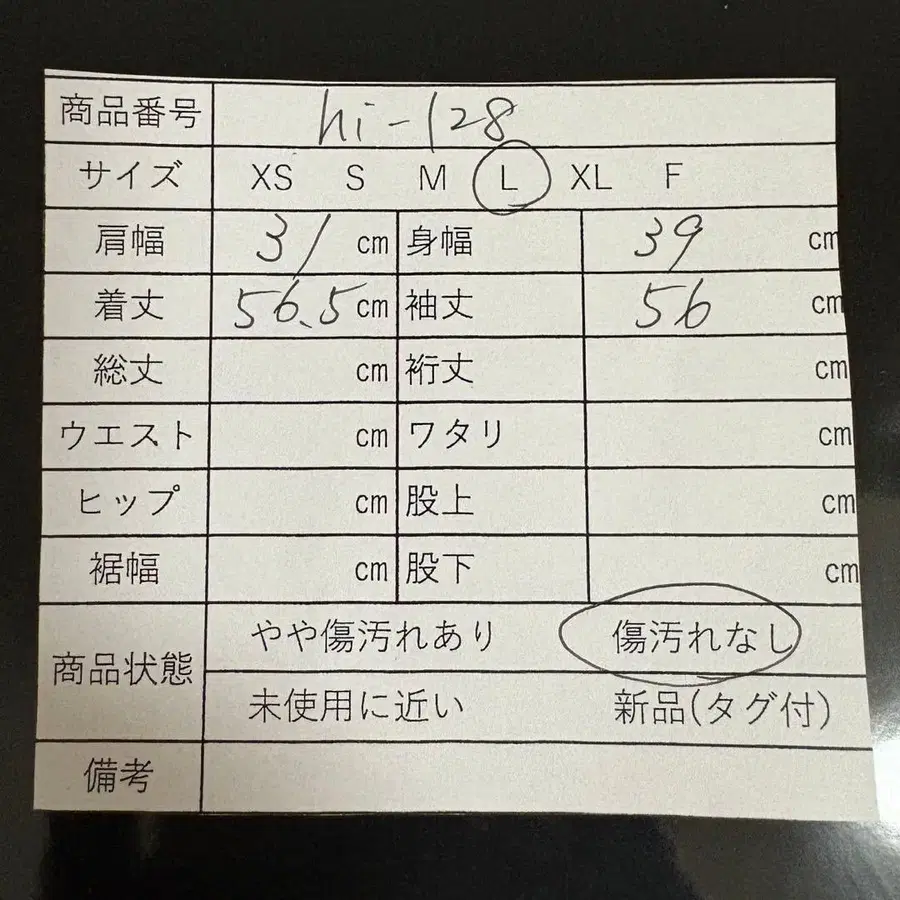 商品番号 hi-128
サイズ XS S M L XL F
肩幅 31 cm 身幅 39 cm
着丈 56.5 cm 袖丈 56 cm
総丈 cm 裄丈 cm
ウエスト cm ワタリ cm
ヒップ cm 股上 cm
裾幅 cm 股下 cm
商品状態 やや傷汚れあり 傷汚れなし
未使用に近い 新品(タグ付)
備考